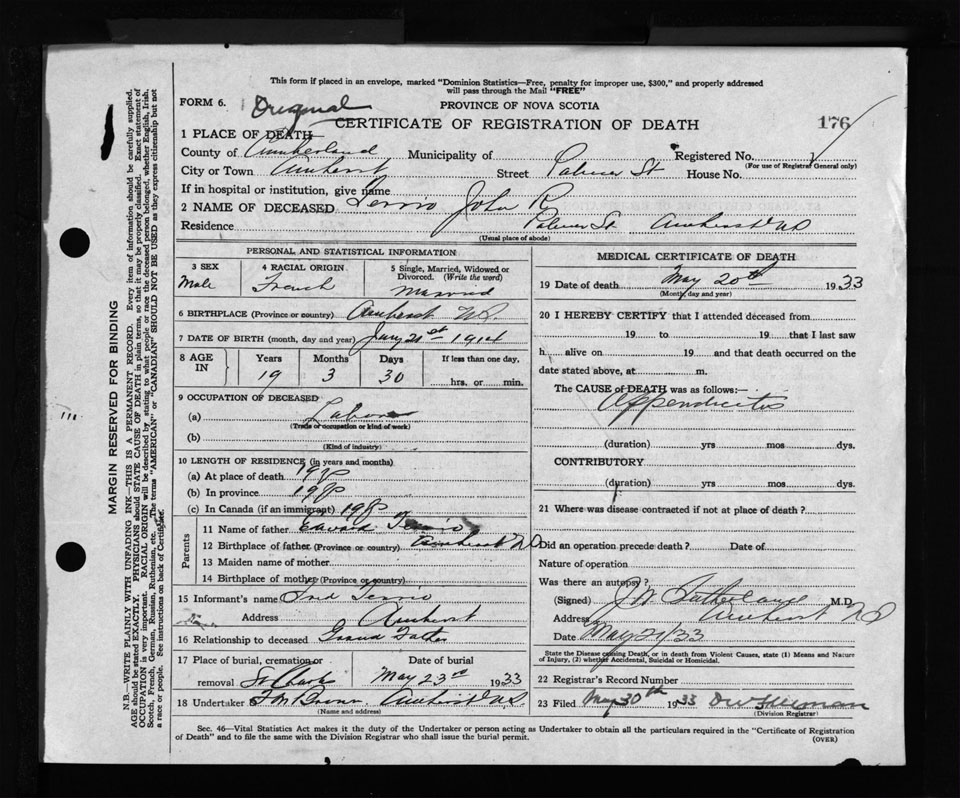 This form if placed in an envelope, marked "Dominion Statistics—Free, penalty for improper use, $300," and properly addressed
will pass through the Mail "FREE"
FORM 6. Original PROVINCE OF NOVA SCOTIA
CERTIFICATE OF REGISTRATION OF DEATH 176
1 PLACE OF DEATH
County of Cumberland Municipality of Registered No.
(For use of Registrar General only)
City or Town Amherst Street Palmer St House No.
If in hospital or institution, give name
2 NAME OF DECEASED John R
Residence Palmer St. Amherst NS
(Usual place of abode)
PERSONAL AND STATISTICAL INFORMATION
3 SEX 4 RACIAL ORIGIN 5 Single, Married, Widowed or Divorced. (Write the word)
Male French Married
6 BIRTHPLACE (Province or country) Amherst NS
7 DATE OF BIRTH (month, day and year) Jany 21st 1914
8 AGE IN Years Months Days If less than one day,
19 3 30 hrs. or min.
9 OCCUPATION OF DECEASED
(a) Labor
(Trade or occupation or kind of work)
(b)
(Kind of industry)
10 LENGTH OF RESIDENCE (in years and months)
(a) At place of death 19
(b) In province 19
(c) In Canada (if an immigrant) 19
Parents
11 Name of father Edward
12 Birthplace of father (Province or country) Amherst NS
13 Maiden name of mother
14 Birthplace of mother (Province or country)
15 Informant's name
Address Amherst
16 Relationship to deceased Grand Father
17 Place of burial, cremation or removal Date of burial
St Charles May 23rd 1933
18 Undertaker Amherst NS
(Name and address)
MEDICAL CERTIFICATE OF DEATH
19 Date of death May 20th 1933
(Month, day and year)
20 I HEREBY CERTIFY that I attended deceased from
19 to 19 that I last saw
h alive on 19 and that death occurred on the
date stated above, at m.
The CAUSE of DEATH was as follows:—
Appendicitis
(duration) yrs mos dys.
CONTRIBUTORY
(duration) yrs mos dys.
21 Where was disease contracted if not at place of death?
Did an operation precede death? Date of
Nature of operation
Was there an autopsy?
(Signed) J W Sutherland M.D.
Address Amherst NS
Date May 29/33
State the Disease causing Death, or in death from Violent Causes, state (1) Means and Nature
of Injury, (2) whether Accidental, Suicidal or Homicidal.
22 Registrar's Record Number
23 Filed May 30th 1933
(Division Registrar)
Sec. 46—Vital Statistics Act makes it the duty of the Undertaker or person acting as Undertaker to obtain all the particulars required in the "Certificate of Registration
of Death" and to file the same with the Division Registrar who shall issue the burial permit. (OVER)
MARGIN RESERVED FOR BINDING
N.B.—WRITE PLAINLY WITH UNFADING INK—THIS IS A PERMANENT RECORD. Every item of information should be carefully supplied.
AGE should be stated EXACTLY. PHYSICIANS should STATE CAUSE OF DEATH in plain terms, so that it may be properly classified. Exact statement of
OCCUPATION is very important. RACIAL ORIGIN will be described by stating to what people or race the deceased person belonged, whether English, Irish,
Scotch, French, German, Russian, Ruthenian, etc. The terms "AMERICAN" or "CANADIAN" SHOULD NOT BE USED as they express citizenship but not
a race or people. See instructions on back of Certificate.